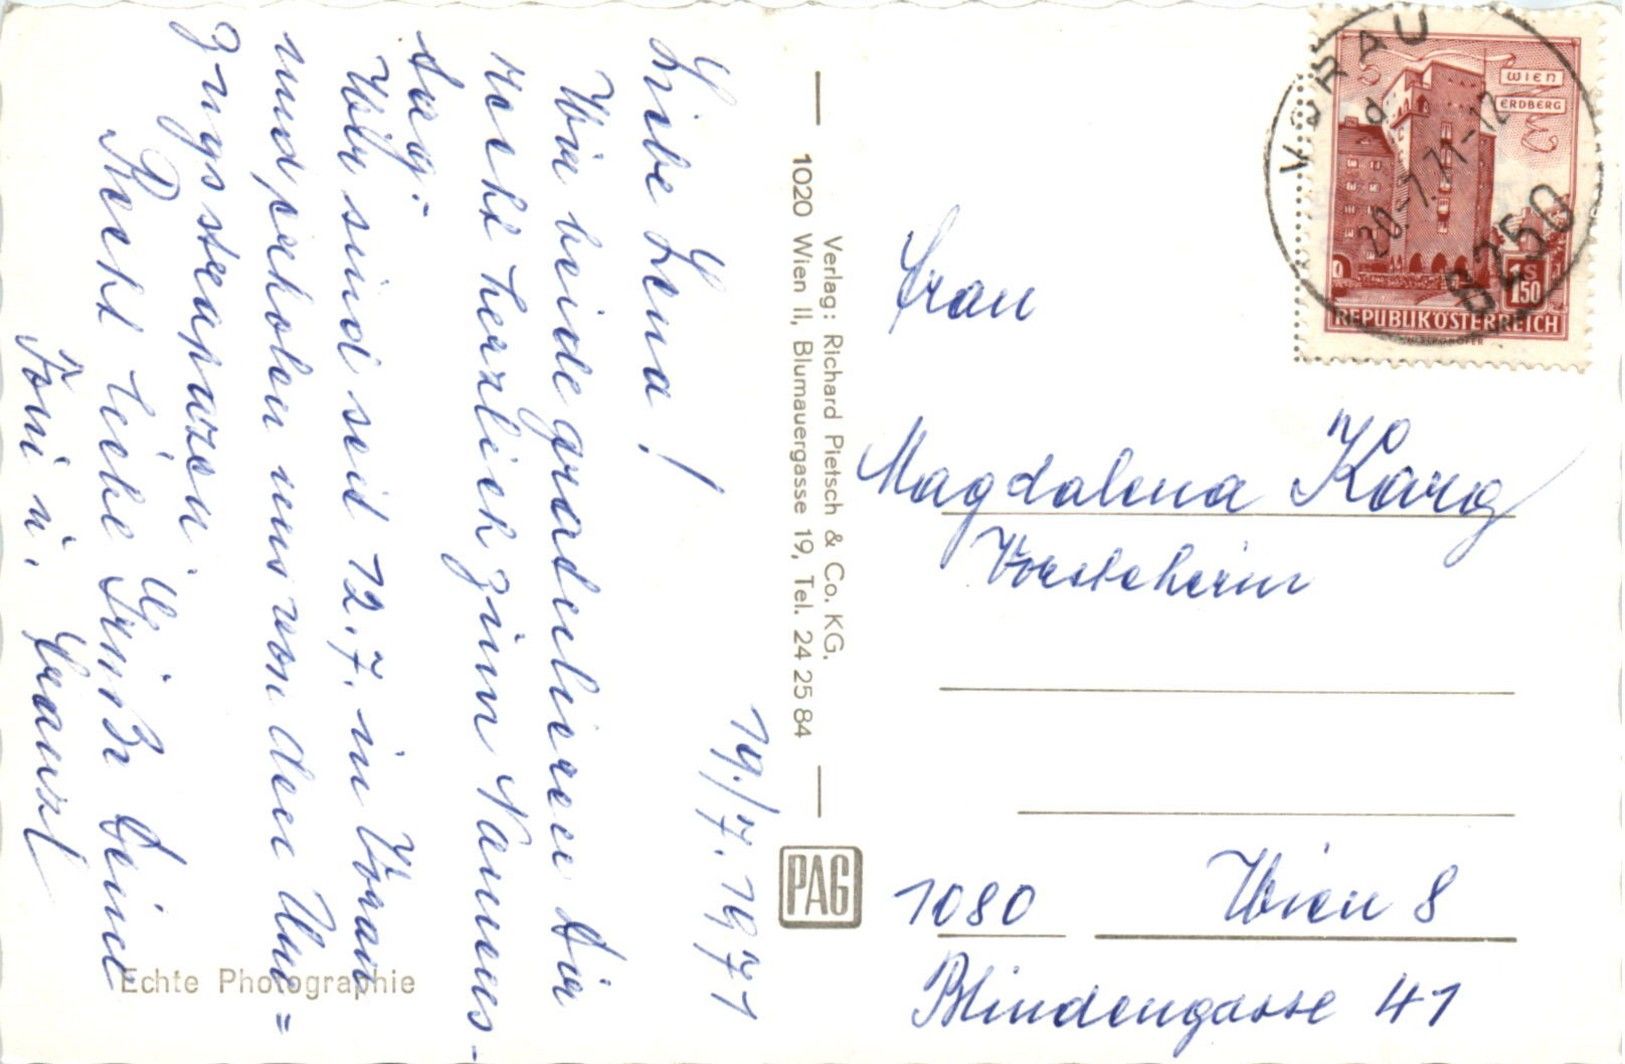 19./7. 1971
Liebe Lena!
Wir beide gradulieren Dir
recht herzlich zum Namens-
tag.
Wir sind seit 12.7. in Vorau
und erholen uns von den Um=
zugsstrapazen.
Recht liebe Grüße Deine
Toni u. Franzl
Echte Photographie
Verlag: Richard Pietsch & Co. KG,
1020 Wien II, Blumauergasse 19, Tel. 24 25 84
PAG
VORAU
d
20.-7.71-12
8250
WIEN
ERDBERG
1S
50
REPUBLIK ÖSTERREICH
Frau
Magdalena Karg
Vorsteherin
1080 Wien 8
Blindengasse 41